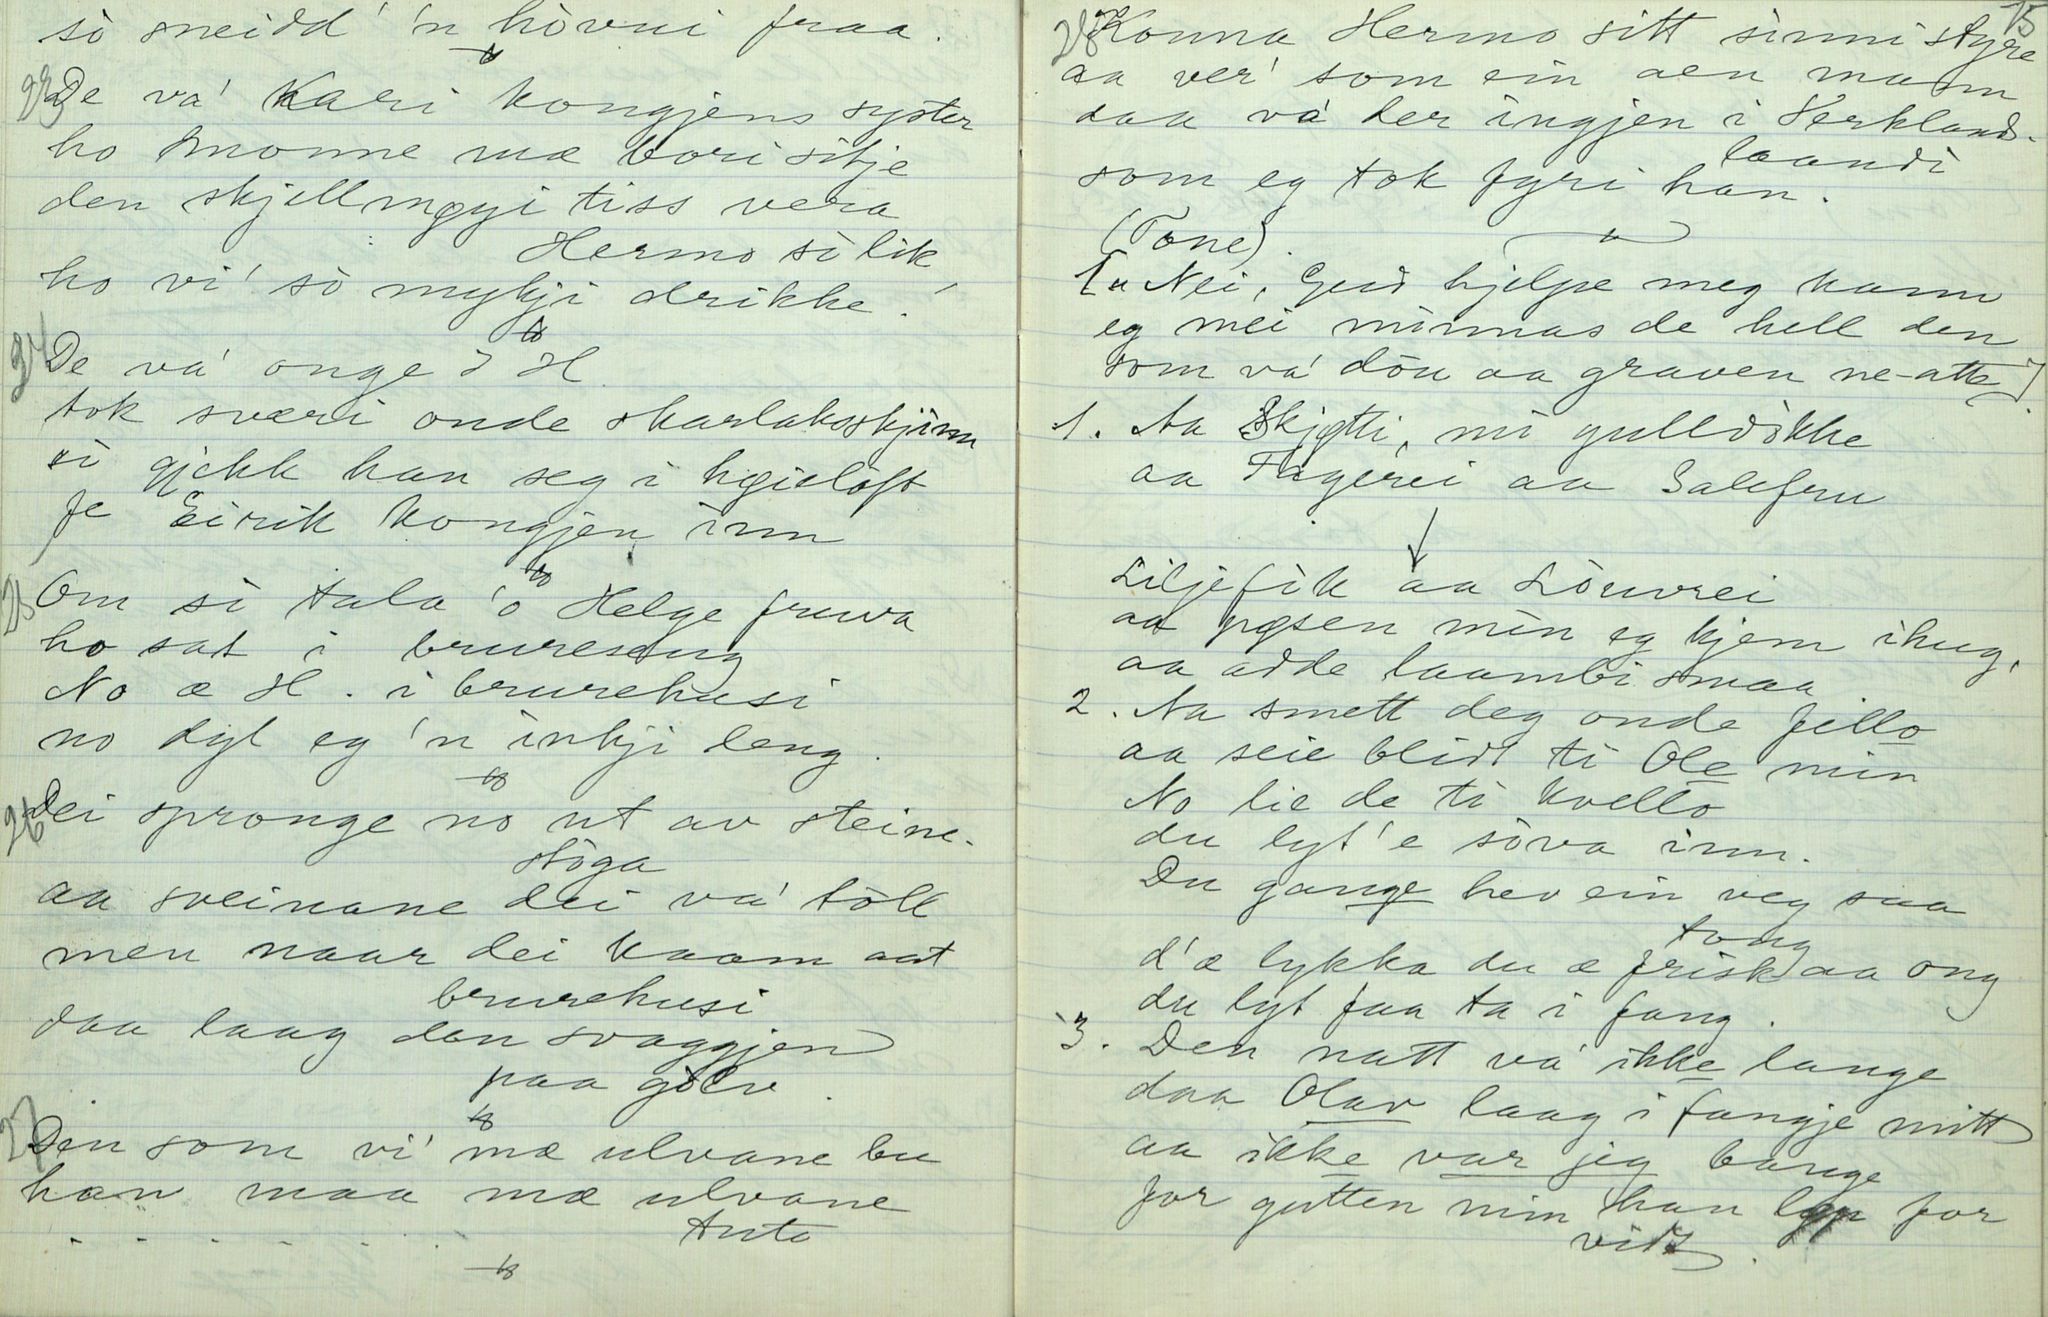 sò sneidd' 'n hòvui fraa.
23 De va' Kari kongjens syster
ho monne mæ bori sitje
den skjellmøyi tiss vera
Hermo sì lik,
ho vi' sò mykji drikke!
24 De va' onge H
tok sværi onde skarlaksskjinn
sì gjekk han seg i høieloft
fe Eirik kongjen inn
25 Om sì tala 'o Helge fruva
ho sat i brureseng
No æ H. i brurehusi
no dyl eg 'n inkji leng.
26 Dei spronge no ut av steine-
stòga
aa sveinane dei va' tòll
men naar dei kaam aat
brurehusi
daa laag den svaggjen
paa gòlv.
27 Den som vi' mæ ulvane bu
han maa mæ ulvane
tuta
15
28 Konna Hermo sitt sinni styre
aa ver' som ein aen mann
daa va' der ingjen i Verkland-
laandi
som eg tok fyri han.
(Tone).
[Nei, Gud hjelpe meg kann
eg mei minnas de hell den
som va' dòu aa graven ne-atte].
1. Aa Skjøtti, mi gulldokke
aa Fagerei aa Salefru
Liljefik aa Lòuvrei
aa pøsen min eg kjem ihug,
aa adde laambi smaa
2. Aa smett deg onde fillo
aa seie blidt ti Ole min
No lie de ti kvello
du lyt 'e sòva inn.
Du gange hev ein veg saa
tong
d'æ lykka du æ frisk aa ong
du lyt faa ta i fang.
3. Den natt va' ikke lange
daa Olav laag i fangje mitt
aa ikke var jeg bange
for gutten min han for
vidt.